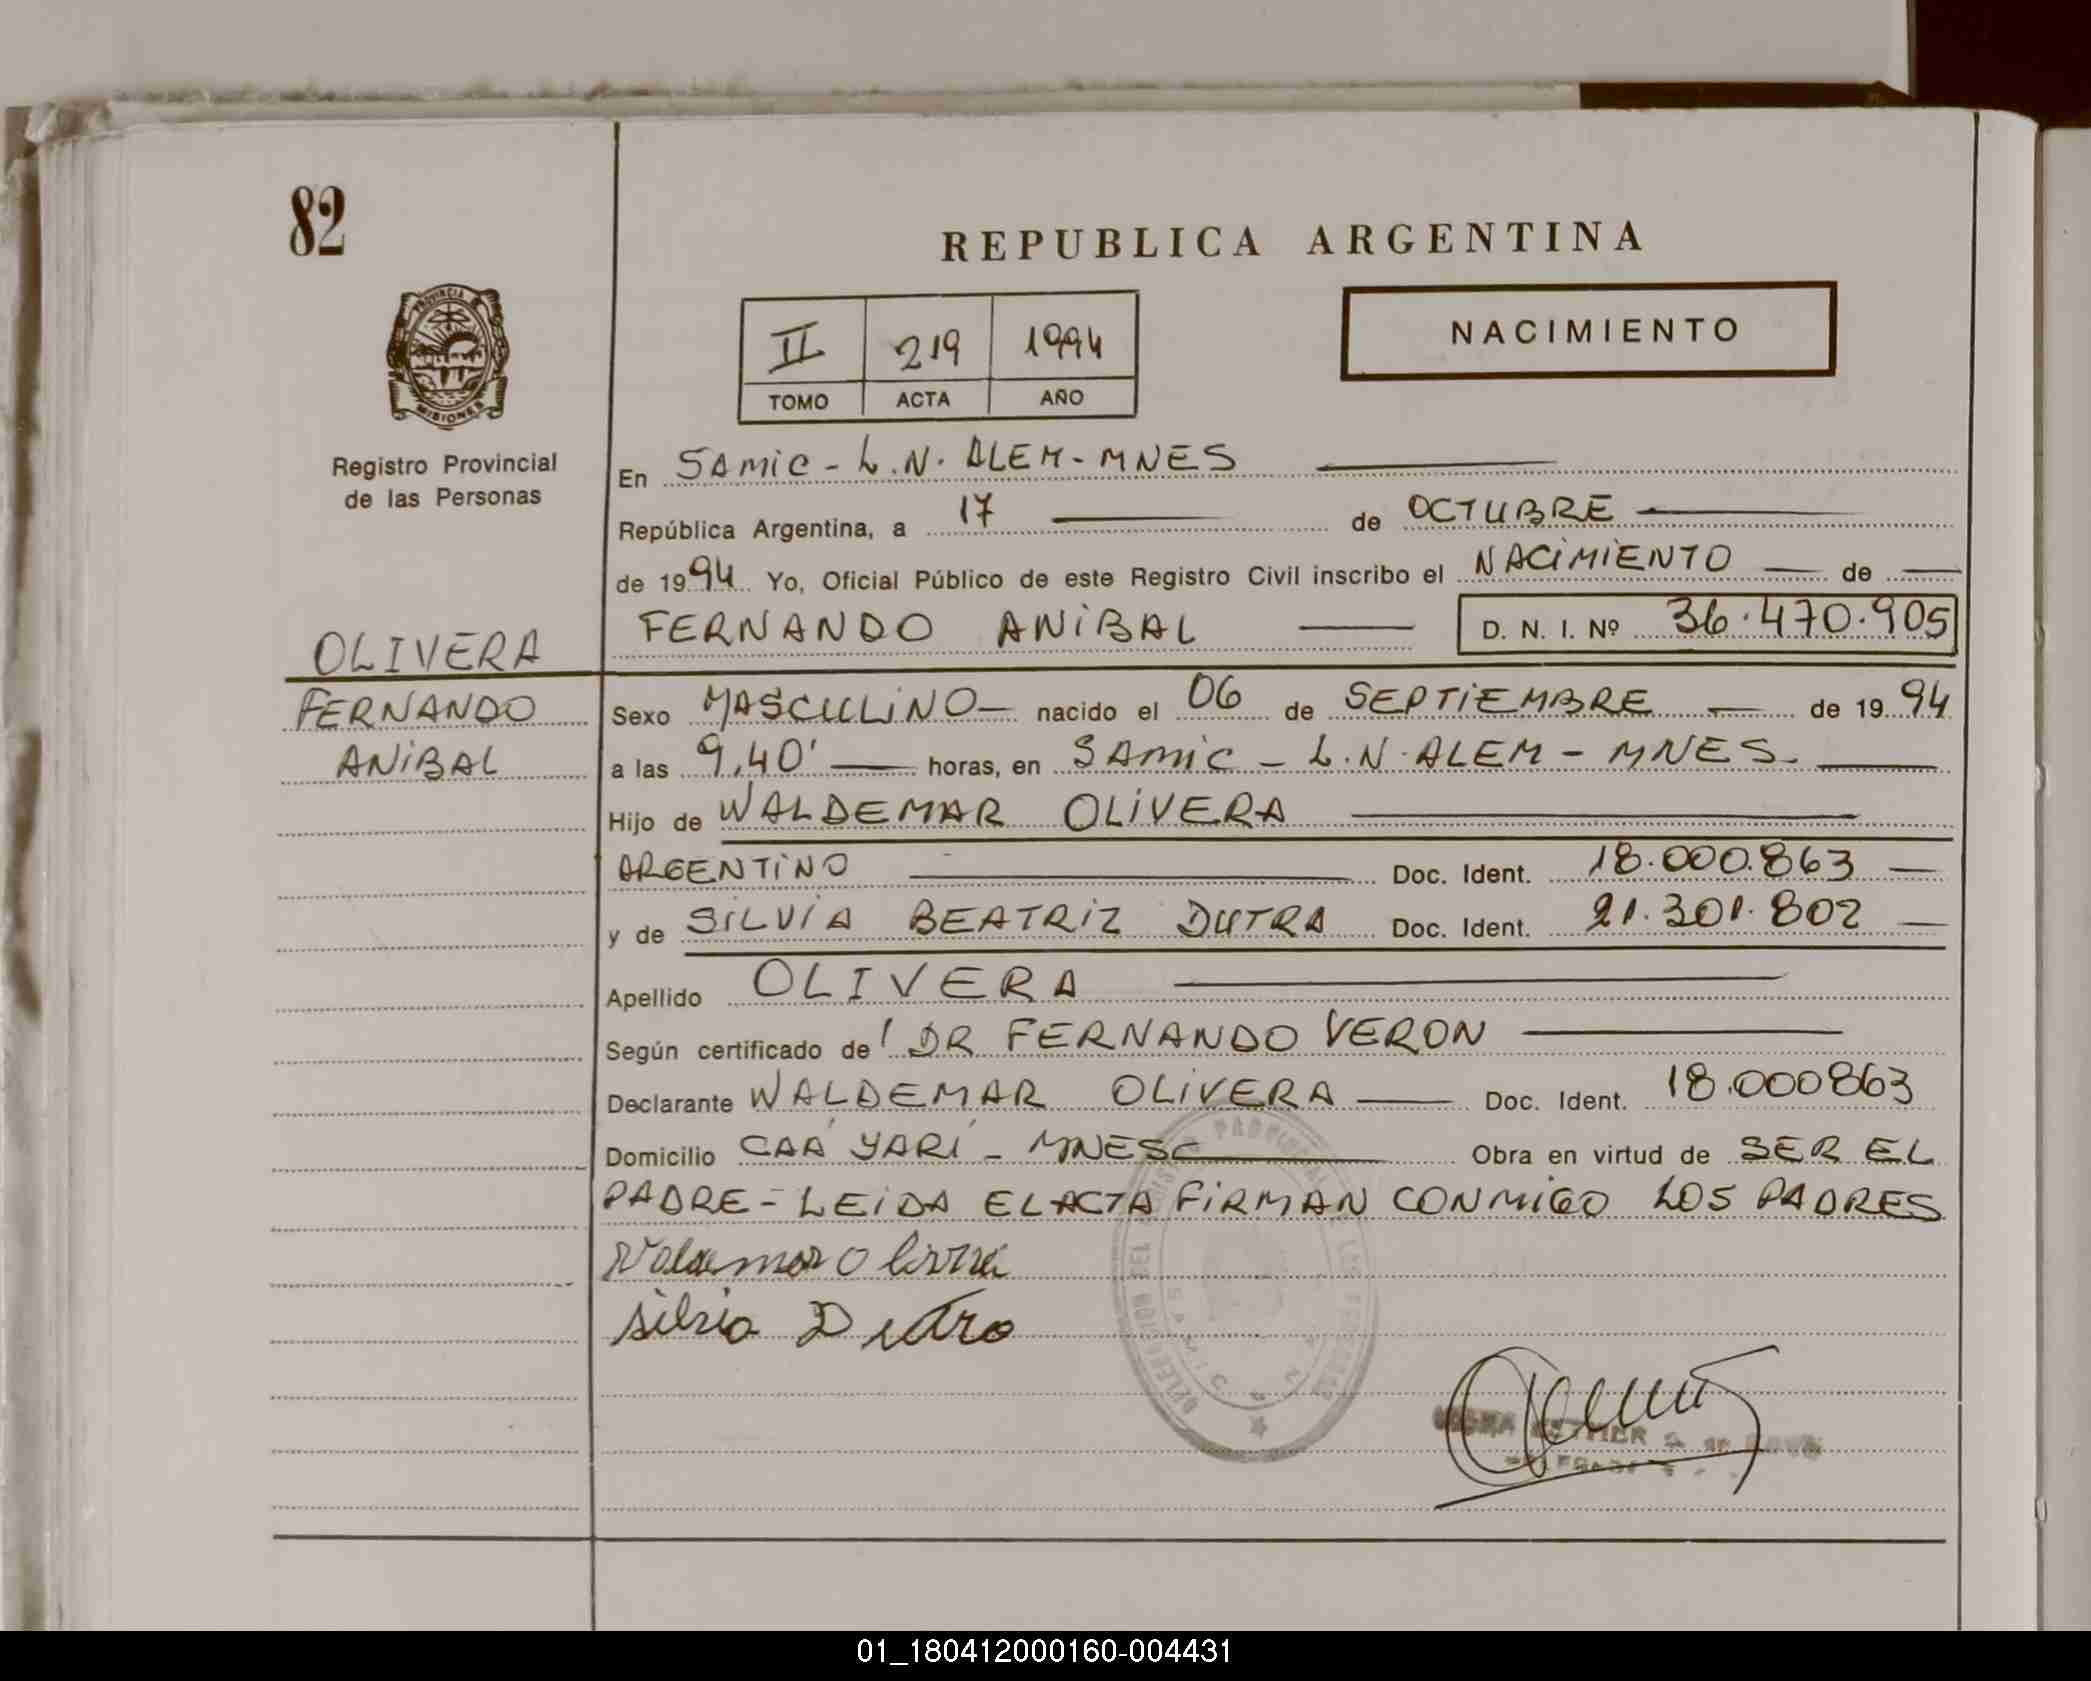 82
REPUBLICA ARGENTINA
II 219 1994
TOMO ACTA AÑO
NACIMIENTO
PROVINCIA
MISIONES
Registro Provincial
de las Personas
En SAMIC - L.N. ALEM - MNES
República Argentina, a 17 de OCTUBRE
de 1994 Yo, Oficial Público de este Registro Civil inscribo el NACIMIENTO de
FERNANDO ANIBAL D. N. I. Nº 36.470.905
OLIVERA
FERNANDO
ANIBAL
Sexo MASCULINO nacido el 06 de SEPTIEMBRE de 1994
a las 9,40' horas, en SAMIC - L.N. ALEM - MNES.
Hijo de WALDEMAR OLIVERA
ARGENTINO Doc. Ident. 18.000.863
y de SILVIA BEATRIZ DUTRA Doc. Ident. 21.301.802
Apellido OLIVERA
Según certificado de DR FERNANDO VERON
Declarante WALDEMAR OLIVERA Doc. Ident. 18.000863
Domicilio CAÁ YARÍ - MNES Obra en virtud de SER EL
PADRE - LEIDA EL ACTA FIRMAN CONMIGO LOS PADRES
Waldemar Olivera
Silvia Dutra
01_180412000160-004431